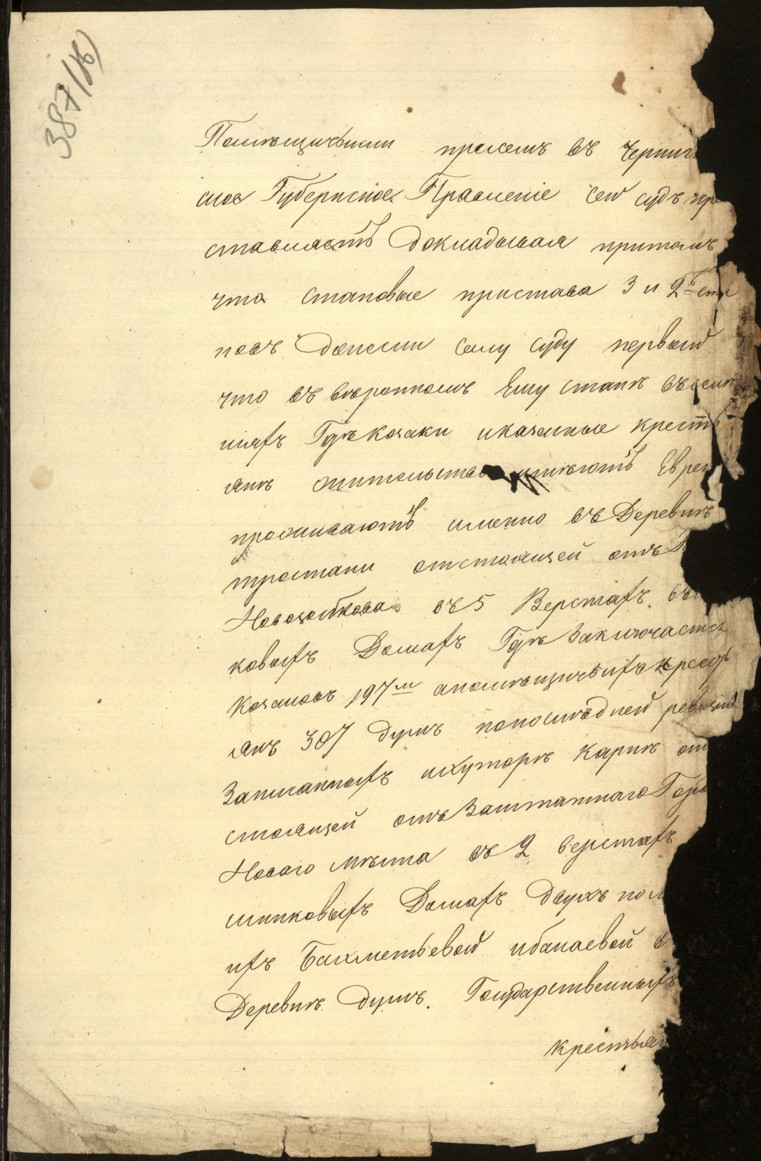 387(об)
Помещичьими прослелъ въ Черниг
ское Губернское Правленіе сей судъ пре
ставляетъ докладывая притомъ
что становые пристава 3 и 2го ста
новъ донесли сему суду первый
что въ ввѣренномъ Ему станѣ въ
ніяхъ Гдѣ козаки иказенные крестъ
янѣ жительство имѣютъ Евреи
проживаютъ именно въ Деревнѣ
тростани отстоящей отъ Г
Новозыбкова въ 5 Верстахъ въ
ковыхъ Домахъ Гдѣ Заключается
Козаковъ 197м апомѣщичьихъ кресть
янъ 307 душъ попослѣдней ревизіи
Записанныхъ ихуторѣ Каринѣ от
стоящей отъ Заштатнаго Горо
Новаго мѣста въ 2 верстахъ
шинковыхъ Домахъ двухъ пом
ихъ Бахметьевой
Деревнѣ душъ. Государственныхъ
крестьян